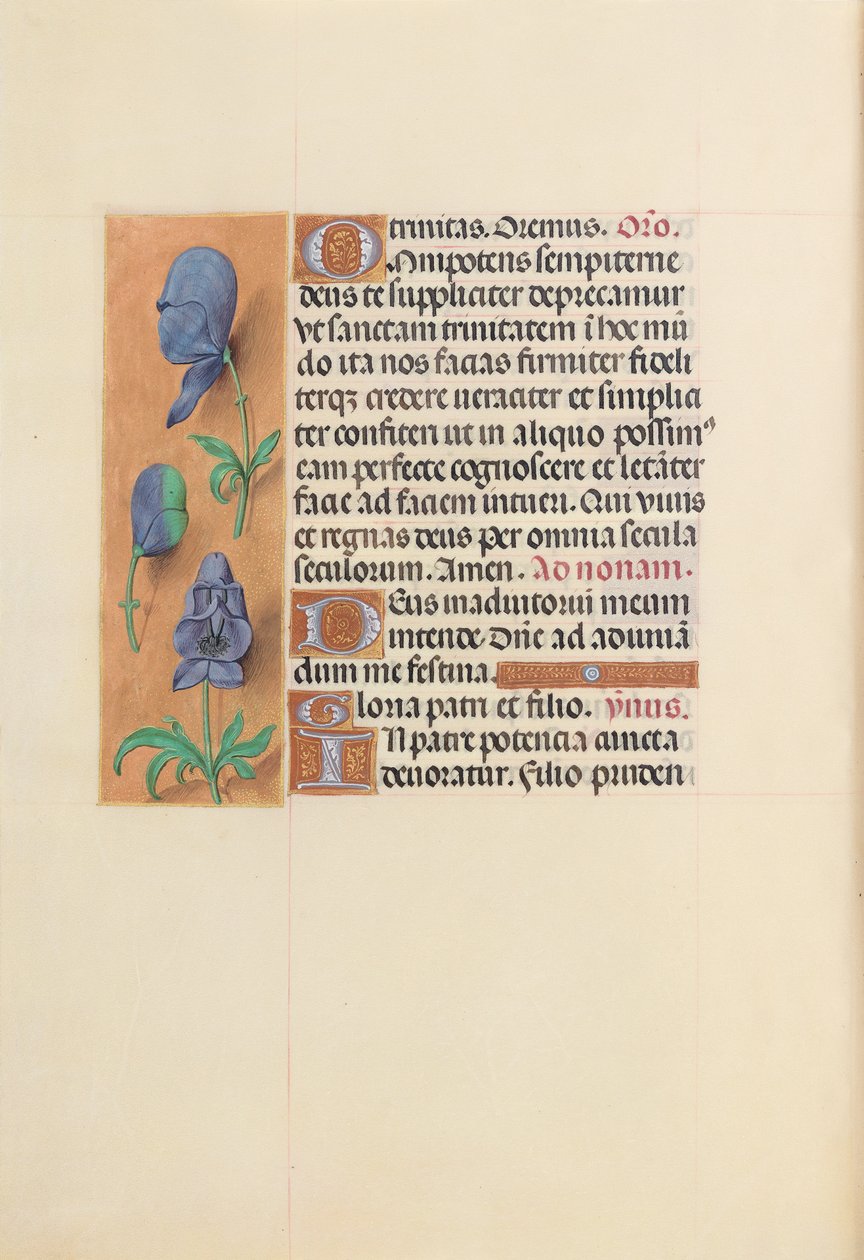 trinitas. Oremus. Orõ.
OMnipotens sempiterne
deus te suppliciter deprecamur
vt sanctam trinitatem ĩ hoc mũ
do ita nos facias firmiter fideli
terqꝫ credere ueraciter et simplici
ter confiteri ut in aliquo possimꝰ
eam perfecte cognoscere et letãter
facie ad faciem intueri. Qui viuis
et regnas deus per omnia secula
seculorum. Amen. Ad nonam.
DEus in adiutoriũ meum
intende. Dñe ad adiuuã
dum me festina.
Gloria patri et filio. ỹmus.
IN patre potencia cuncta
deuoratur. Filio pruden